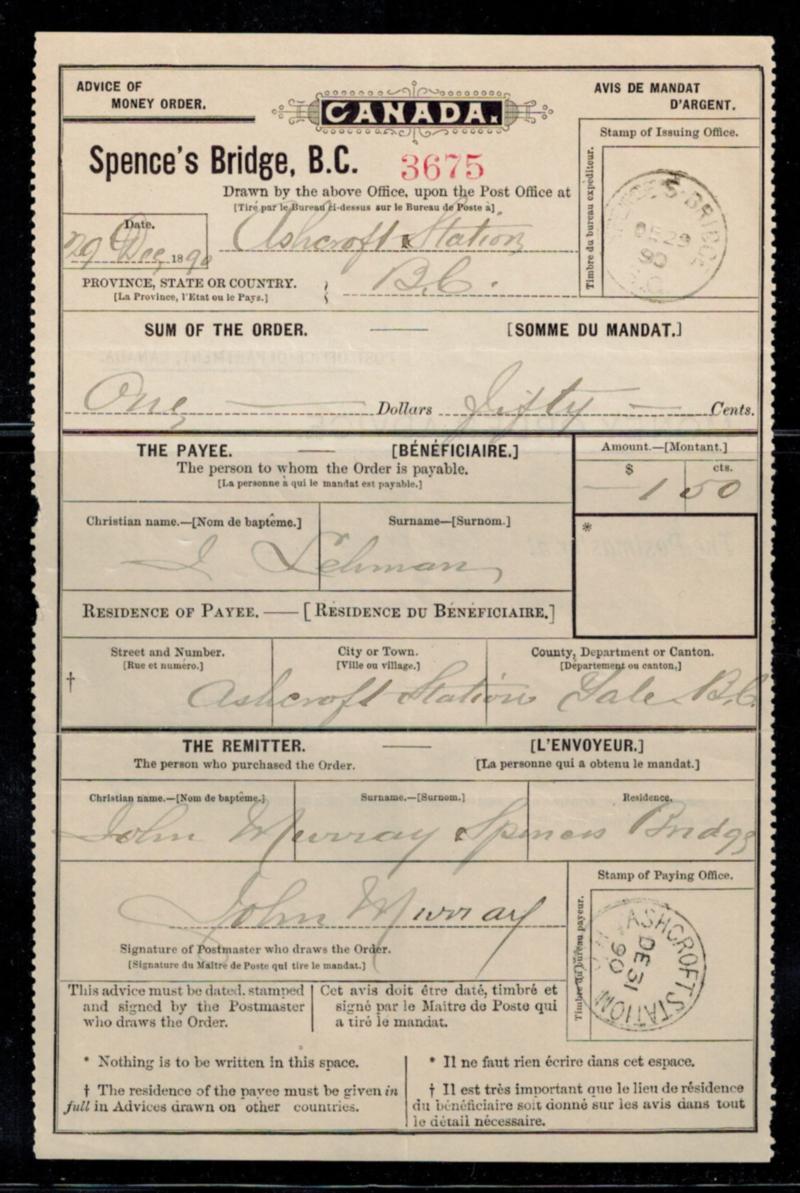 ADVICE OF
MONEY ORDER.
CANADA.
AVIS DE MANDAT
D'ARGENT.
Spence's Bridge, B.C. 3675
Stamp of Issuing Office.
Timbre du bureau expéditeur.
SPENCE'S-BRIDGE
DE 29
90
B.C.
Drawn by the above Office, upon the Post Office at
[Tiré par le Bureau ci-dessus sur le Bureau de Poste à]
Date.
29 Dec 1890
Ashcroft Station
PROVINCE, STATE OR COUNTRY. B.C.
[La Province, l'Etat ou le Pays.]
SUM OF THE ORDER. — [SOMME DU MANDAT.]
One — Dollars fifty — Cents.
THE PAYEE. — [BÉNÉFICIAIRE.]
The person to whom the Order is payable.
[La personne à qui le mandat est payable.]
Amount.—[Montant.]
$ cts.
1 50
Christian name.—[Nom de baptême.] Surname—[Surnom.]
*
I Lehman
RESIDENCE OF PAYEE. — [RÉSIDENCE DU BÉNÉFICIAIRE.]
Street and Number. City or Town. County, Department or Canton.
[Rue et numéro.] [Ville ou village.] [Département ou canton.]
† Ashcroft Station Yale B.C.
THE REMITTER. — [L'ENVOYEUR.]
The person who purchased the Order. [La personne qui a obtenu le mandat.]
Christian name.—[Nom de baptême.] Surname.—[Surnom.] Residence.
John Murray Spences Bridge
Stamp of Paying Office.
Timbre du bureau payeur.
ASHCROFT STATION
DE 31
90
John Murray
Signature of Postmaster who draws the Order.
[Signature du Maître de Poste qui tire le mandat.]
This advice must be dated, stamped
and signed by the Postmaster
who draws the Order.
Cet avis doit être daté, timbré et
signé par le Maître de Poste qui
a tiré le mandat.
* Nothing is to be written in this space.
† The residence of the payee must be given in
full in Advices drawn on other countries.
* Il ne faut rien écrire dans cet espace.
† Il est très important que le lieu de résidence
du bénéficiaire soit donné sur les avis dans tout
le détail nécessaire.